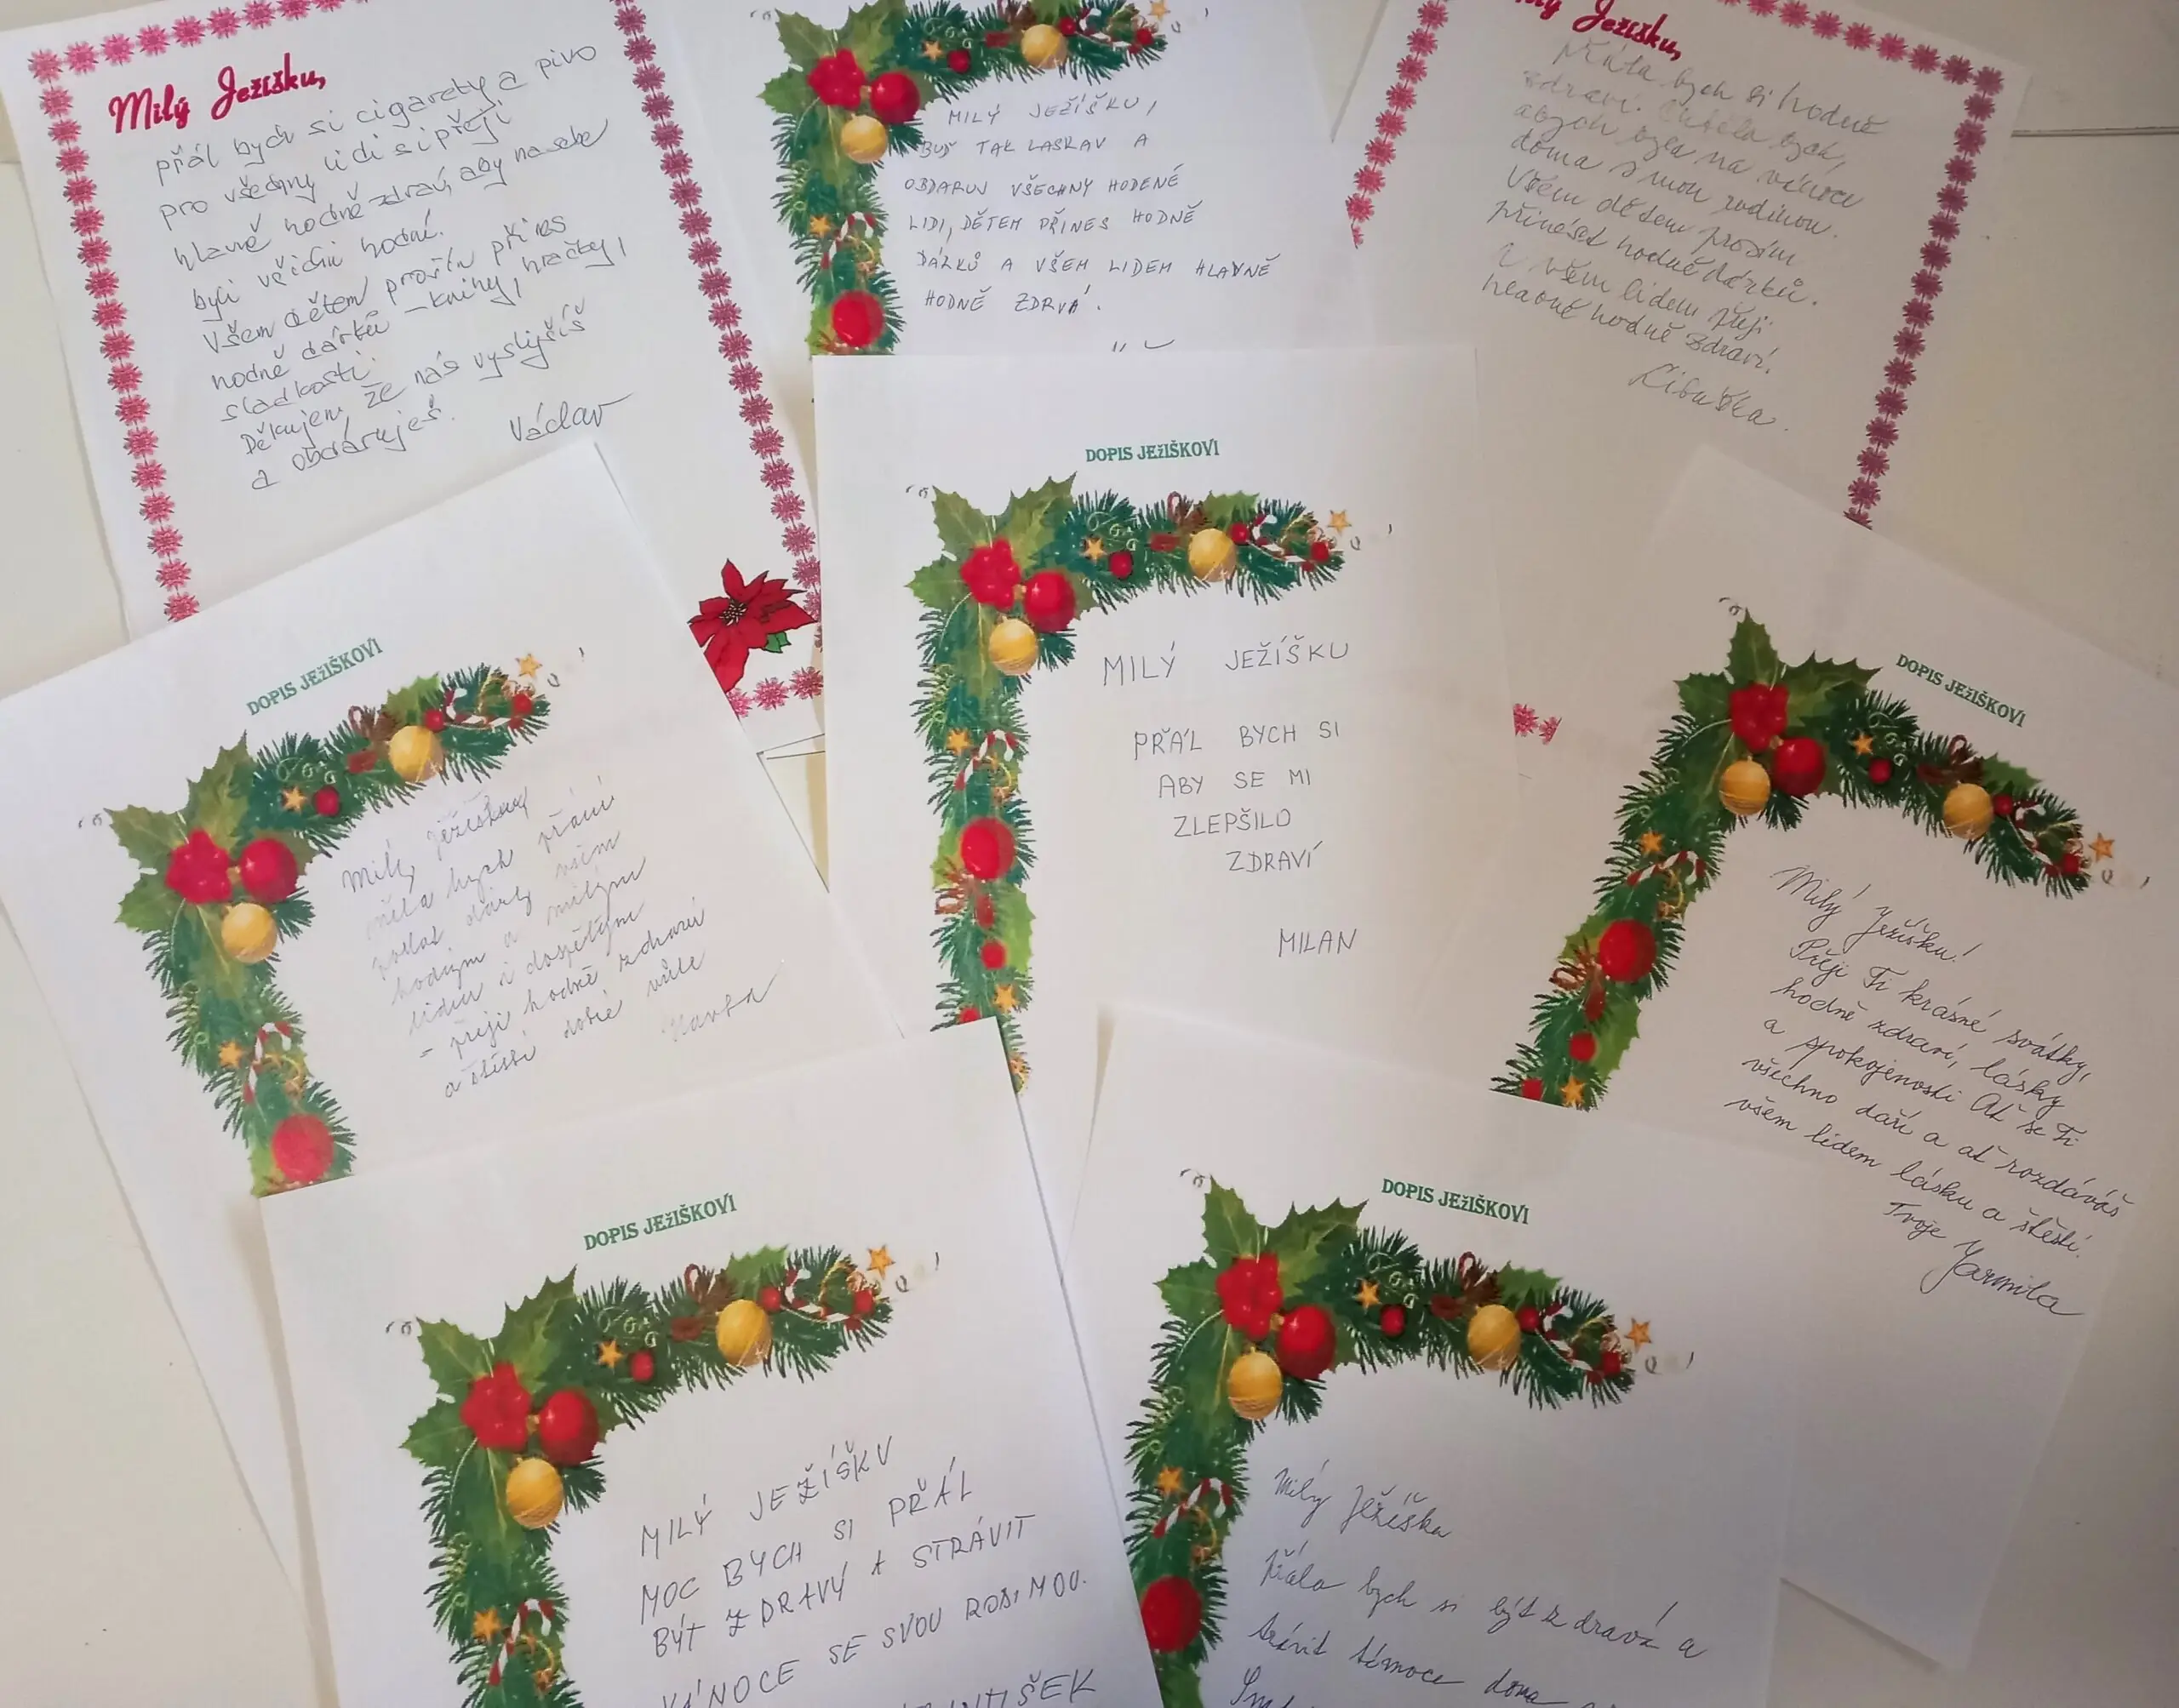 Milý Ježíšku,
přál bych si cigarety a pivo
pro všechny lidi si přeji
hlavně hodně zdraví, aby na sebe
byli všichni hodní.
Všem dětem prosím přines
hodně dárků - knihy, hračky,
sladkosti.
Děkujem, že nás vyslyšíš
a obdaruješ.
Václav
MILÝ JEŽÍŠKU,
BUĎ TAK LASKAV A
OBDARUJ VŠECHNY HODENÉ
LIDI, DĚTEM PŘINES HODNĚ
DÁRKŮ A VŠEM LIDEM HLAVNĚ
HODNĚ ZDRVÁ.
Milý Ježíšku,
Přála bych si hodně
zdraví. Chtěla bych,
abych byla na vánoce
doma s mou rodinou.
Všem dětem prosím
přinést hodně dárků.
všem lidem přeji
hlavně hodně zdraví.
Libuška.
DOPIS JEŽIŠKOVI
Milý Ježíšku
měla bych přání
poslat dárky všem
hodným a milým
lidem i dospělým
- přeji hodně zdraví
a štěstí dobré vůle
Marta
DOPIS JEŽIŠKOVI
MILÝ JEŽÍŠKU
PŘÁL BYCH SI
ABY SE MI
ZLEPŠILO
ZDRAVÍ
MILAN
DOPIS JEŽIŠKOVI
Milý Ježíšku!
Přeji Ti krásné svátky,
hodně zdraví, lásky
a spokojenosti Ať se Ti
všechno daří a ať rozdáváš
všem lidem lásku a štěstí.
Tvoje Jarmila
DOPIS JEŽIŠKOVI
MILÝ JEŽÍŠKU
MOC BYCH SI PŘÁL
BÝT ZDRAVÝ A STRÁVIT
VÁNOCE SE SVOU RODINOU.
DOPIS JEŽIŠKOVI
Milý Ježíšku
Přála bych si být zdravá a
strávit Vánoce doma